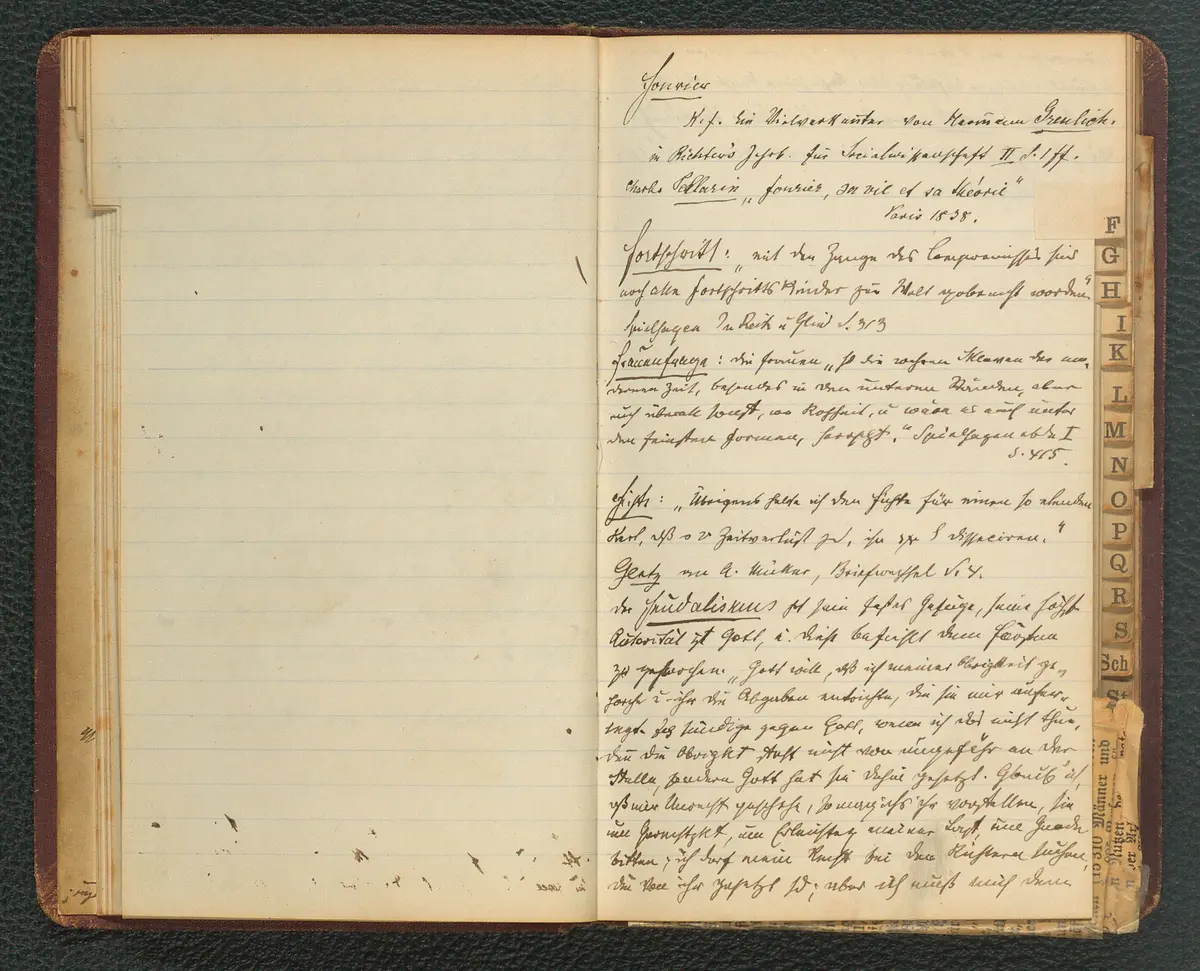 Fourier
Kf. Ein Vielverkannter von Hermann Greulich.
in Richters Jahrb. für Socialwissenschaft II S. 1 ff.
Charles Pellarin „Fourier, sa vie et sa théorie“
Paris 1838.
Fortschritt: „mit der Zange des Compromisses sind
noch alle Fortschritts Kinder zur Welt gebracht worden“
Spielhagen In Reih u Glied S. 313
Frauenfrage: die Frauen „sd die wahren Sklaven der mo-
dernen Zeit, besonders in den unteren Ständen, aber
auch überall sonst, wo Rohheit, u wäre es auch unter
den feinsten Formen, herrscht.“ Spielhagen I
S. 415.
Fichte: „Übrigens halte ich den Fichte für einen so elenden
Kerl, dß Zeitverlust ist, ihn zu disseciren.“
Gentz an A. Müller, Briefwechsel S. 4.
der Feudalismus hat sein festes Gefüge, seine höchste
Autorität ist Gott, u. diese befiehlt dem
zu gehorchen. „Gott will, dß ich meiner Obrigkeit ge-
horche u. ihr die Abgaben entrichte, die sie mir aufer-
legt. Ich sündige gegen Gott, wenn ich das nicht thue,
denn die Obrigkt steht nicht von ungefähr an der
Stelle, sondern Gott hat sie dahin gesetzt. Glaub' ich,
dß mir Unrecht geschehe, so mag ichs ihr vorstellen, sie
um Gerechtigkt, um Erleichterg meiner Last, um Gnade
bitten; ich darf mein Recht bei den Richtern suchen,
die von ihr gesetzt sd; aber ich muß mich dem
F
G
H
I
K
L
M
N
O
P
Q
R
S
Sch
St
310 Männer und
Nutzen